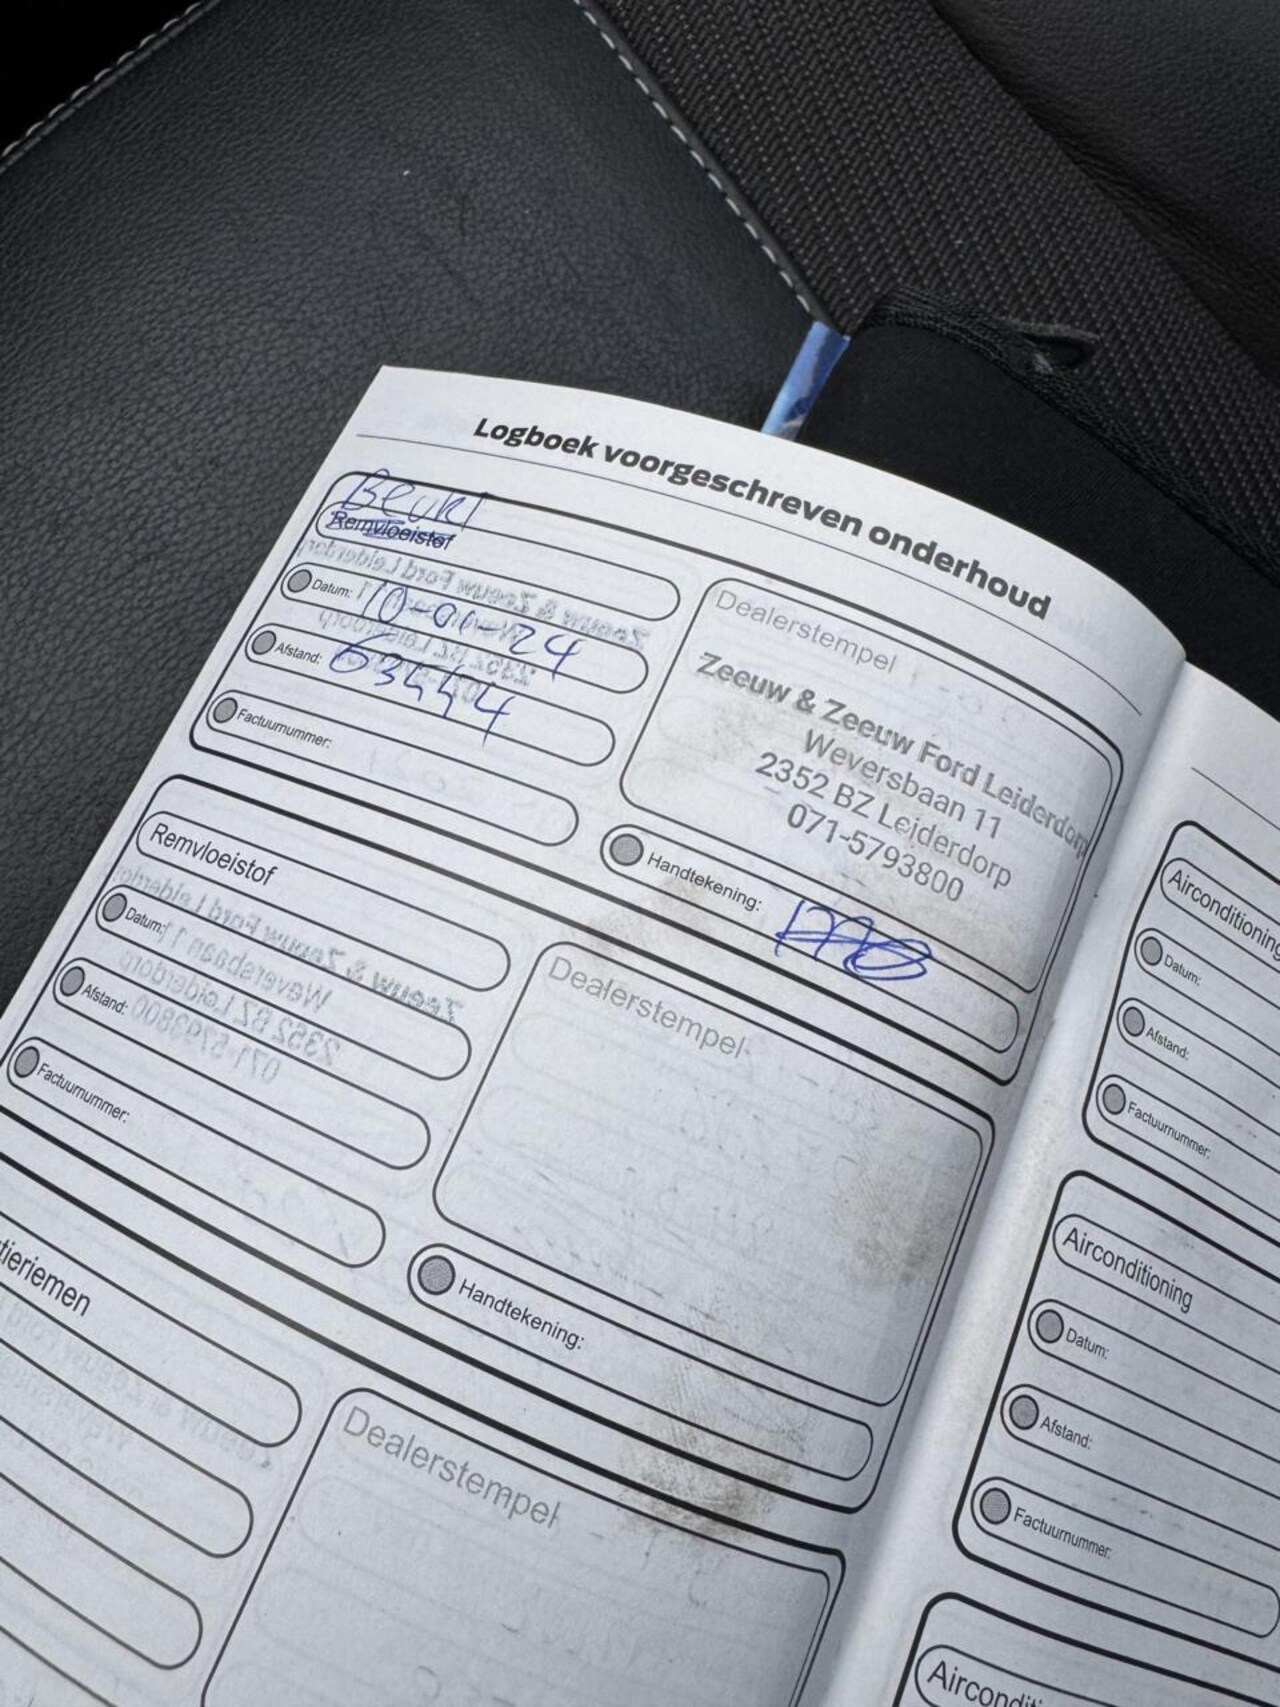 Logboek voorgeschreven onderhoud
Beurt
Remvloeistof
Datum: 10-01-24
Afstand: 63444
Factuurnummer:
Dealerstempel
Zeeuw & Zeeuw Ford Leiderdorp
Weversbaan 11
2352 BZ Leiderdorp
071-5793800
Handtekening:
Remvloeistof
Datum:
Afstand:
Factuurnummer:
Dealerstempel
Handtekening:
tieriemen
Dealerstempel
Airconditioning
Datum:
Afstand:
Factuurnummer:
Airconditioning
Datum:
Afstand:
Factuurnummer:
Airconditi